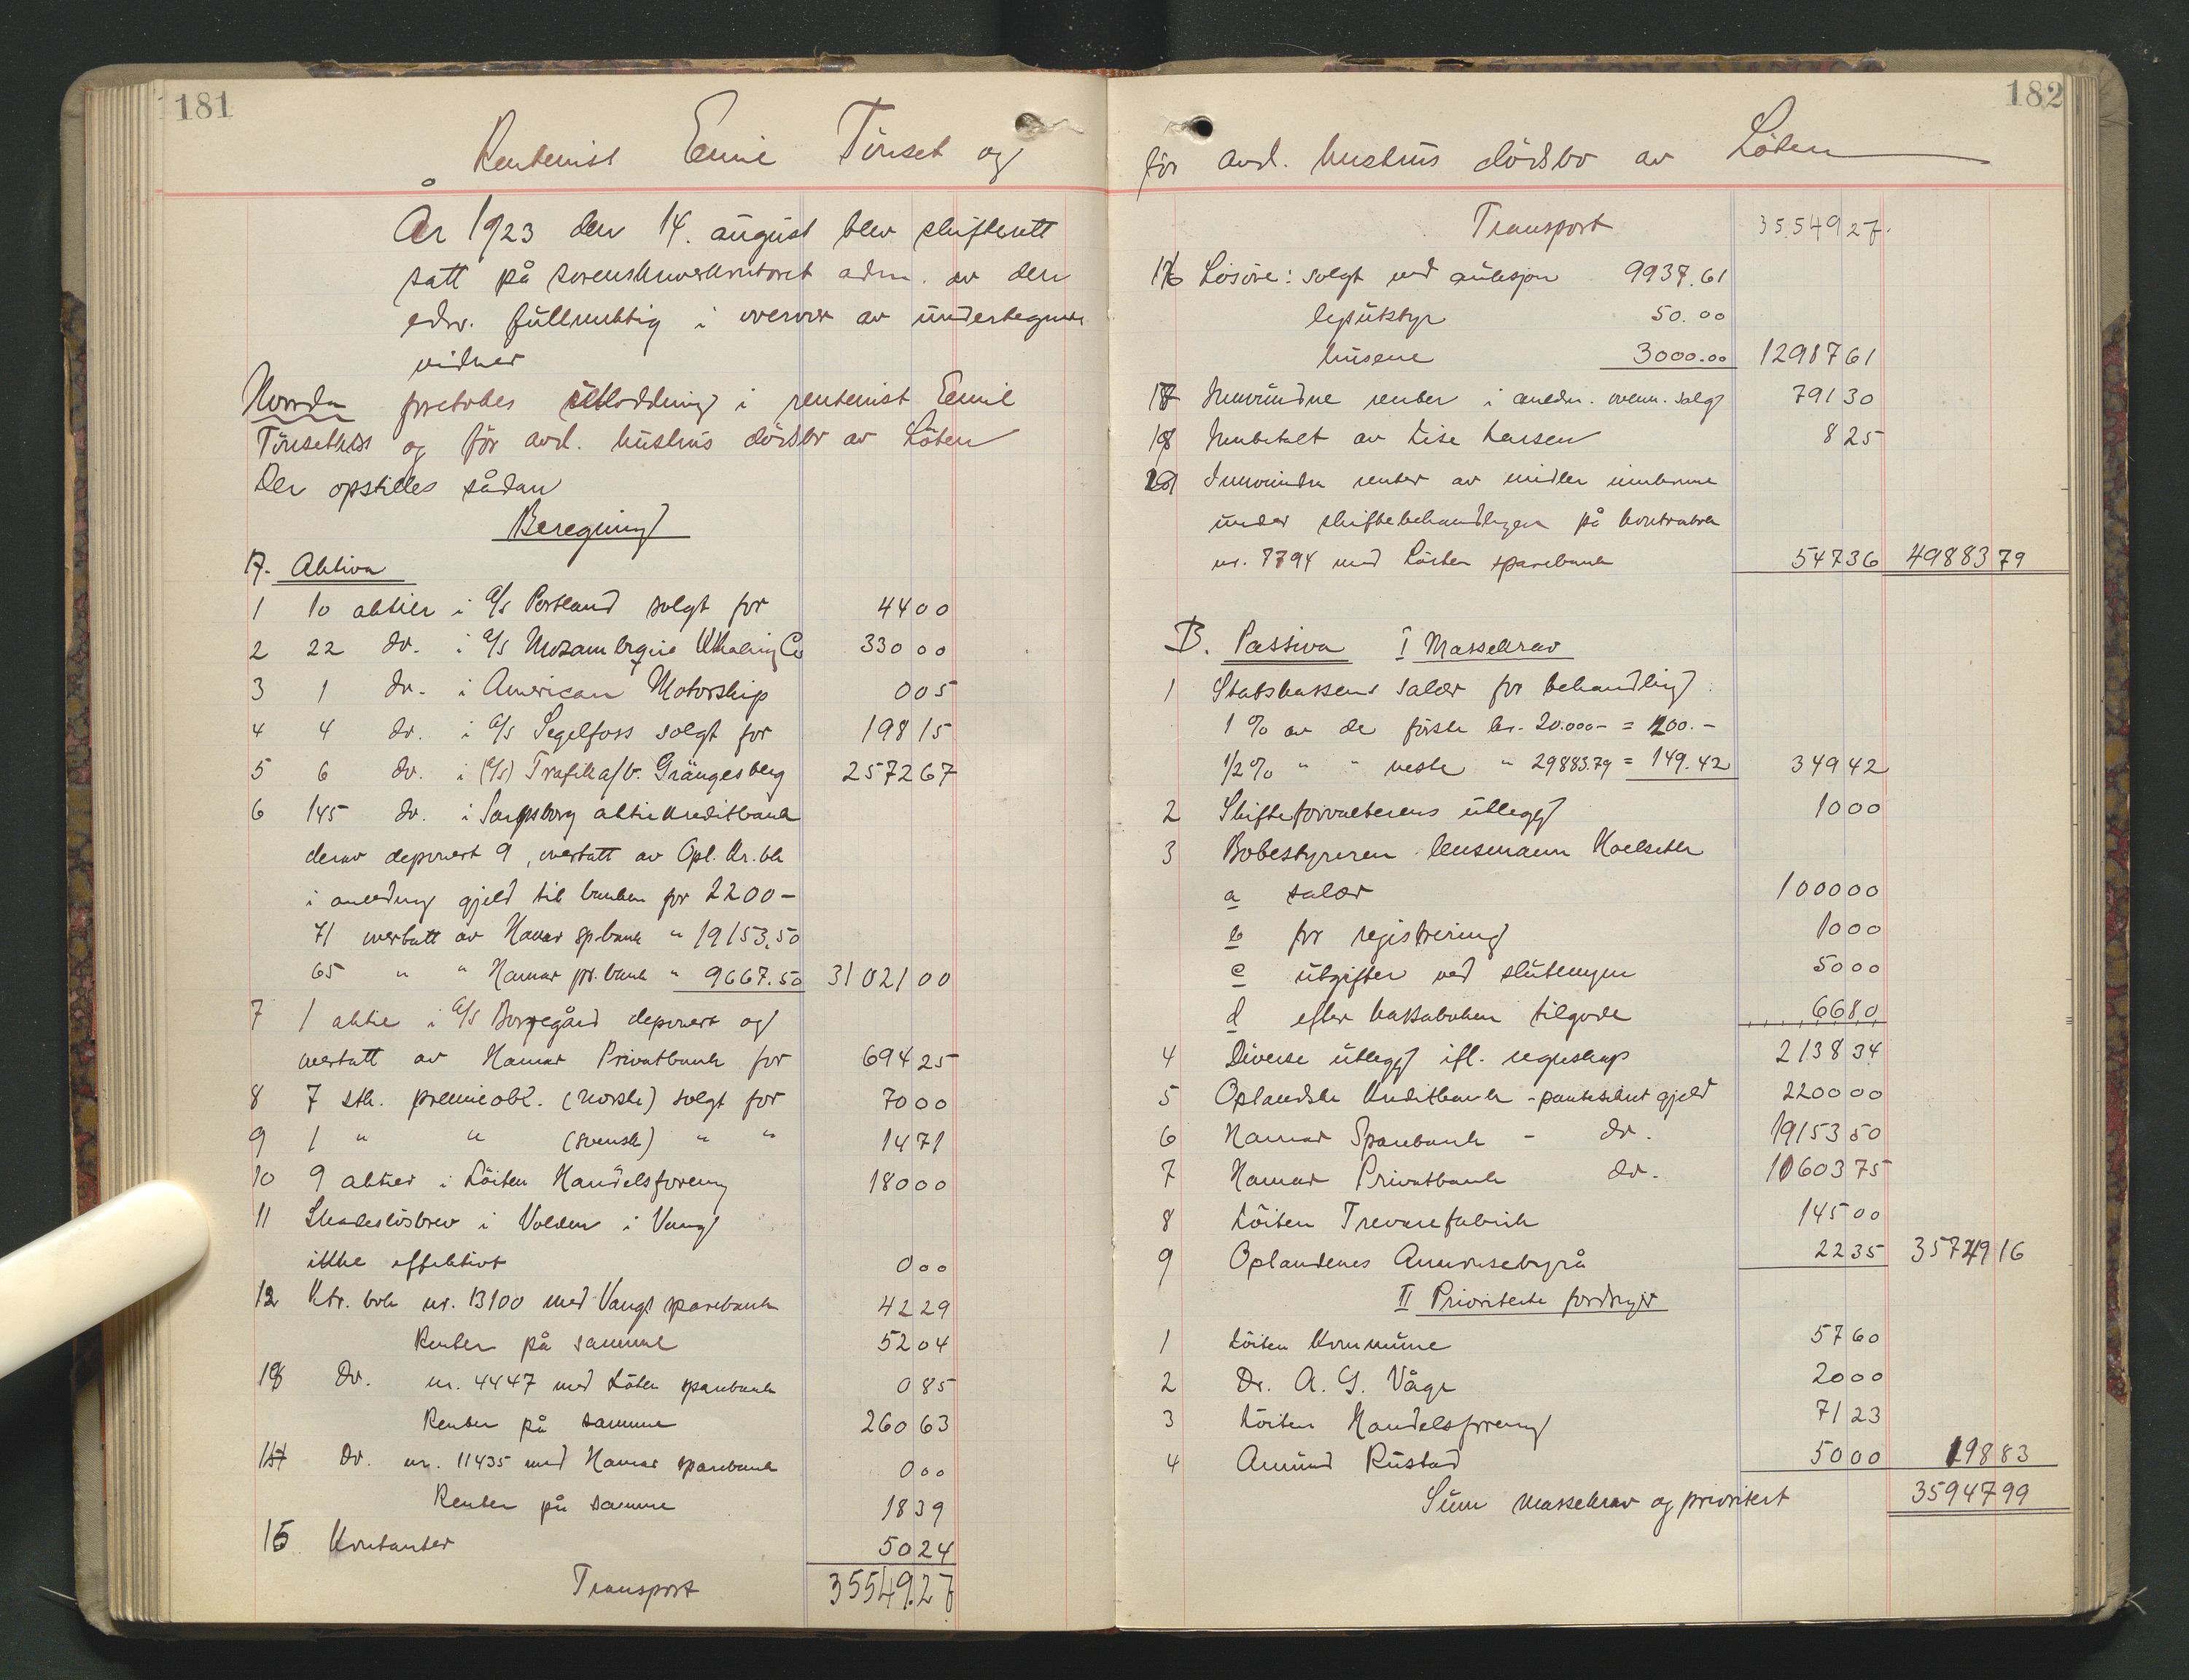 181
Rentenist Emil Tönset og
År 1923 den 14. august blev skifterett
satt på sorenskriverkontoret adm. av den
edsv. fullmektig i overvær av undertegnede
vidner
Norda foretokes utloddning i rentenist Emil
Tönset og før avd. hustrus dödsbo av Löten
Der opstilles sådan
Beregning
A. Aktiva
1 10 aktier i A/S Portland solgt for 44 00
2 22 do. i A/S Mozambique Whaling Co 330 00
3 1 do. i American Motorship 0 05
4 4 do. i A/S Segelfoss solgt for 198 15
5 6 do. i (A/S) Trafik a/b. Grängesberg 2572 67
6 145 do. i Sarpsborg aktiekreditbank
derav deponert 9, overtatt av Opl. Kr.bk
i anledning gjeld til banken for 2200 –
71 overtatt av Hamar sp.bank " 19153,50
65 " " Hamar pr.bank " 9667.50 31021 00
7 1 aktie i A/S Borregård deponert og
overtatt av Hamar Privatbank for 694 25
8 7 stk. premieobl. (norske) solgt for 70 00
9 1 " " (svensk) " " 14 71
10 9 aktier i Löiten Handelsforening 180 00
11 Skadeslösbrev i Volden i Vang
ikke effektivt 0 00
12 Ktr. bok nr. 13100 med Vangs sparebank 42 29
Renter på samme 52 04
13 Do. nr. 4447 med Löten sparebank 0 85
Renter på samme 260 63
14 Do. nr. 11435 med Hamar sparebank 0 00
Renter på samme 18 39
15 Kontanter 50 24
Transport 35549.27
182
før avd. hustrus dödsbo av Löten
Transport 35549 27.
16 Lösöre: solgt ved auksjon 9937.61
lysutstyr 50.00
husene 3000.00 12987 61
17 Innvundne renter i anledn. ovenn. salg 791 30
18 Innbetalt av Lise Larsen 8 25
19 Innvundne renter av midler innkomne
under skiftebehandlingen på kontrabok
nr. 7794 med Löiten sparebank 547 36 49883 79
B. Passiva I Massekrav
1 Statskassens salær for behandling:
1 % av de förste kr. 20.000 – = 200. –
1/2 % " " neste " 29883.79 = 149.42 349 42
2 Skifteforvalterens utlegg 10 00
3 Bobestyreren lensmann Kvelseth
a salær 1000 00
b for registrering 10 00
c utgifter ved slutningen 50 00
d efter kassaboken tilgode 66 80
4 Diverse utlegg ifl. regnskap 2138 34
5 Oplandske Kreditbank – pantesikret gjeld 2200 00
6 Hamar Sparebank – do. 19153 50
7 Hamar Privatbank do. 10603 75
8 Löiten Trevarefabrik 145 00
9 Oplandenes Annonsebyrå 22 35 35749 16
II Prioriterte fordringer
1 Löiten Kommune 57 60
2 Dr. A. G. Våge 20 00
3 Löiten Handelsforening 71 23
4 Amund Rustad 50 00 198 83
Sum massekrav og prioritert 35947 99